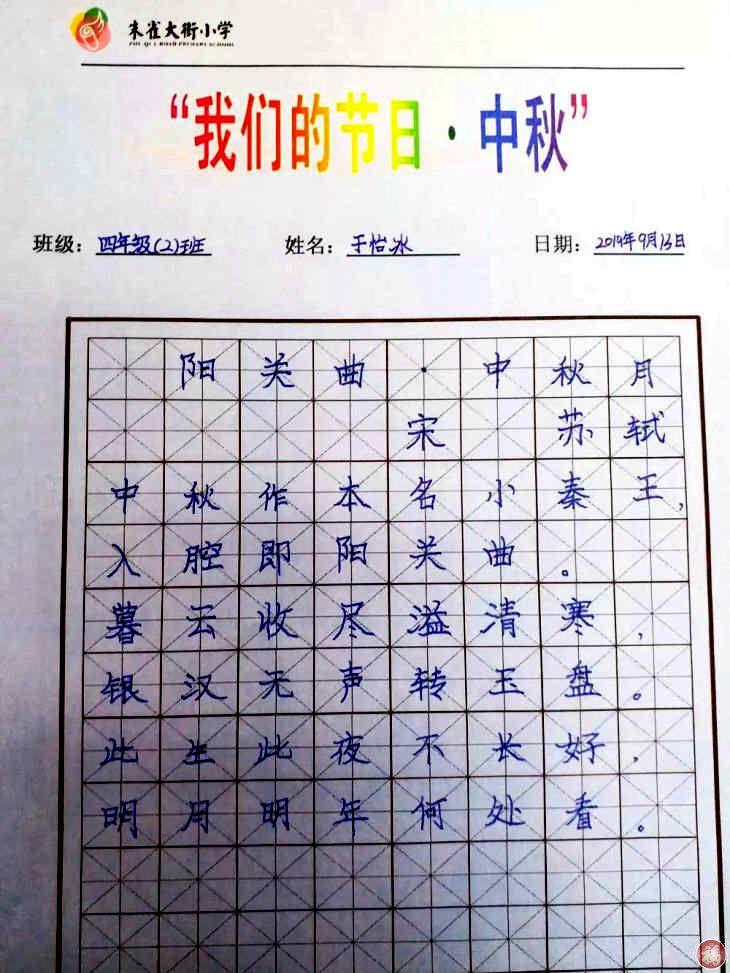 朱雀大街小学
ZHU QUE ROAD PRIMARY SCHOOL
“我们的节日·中秋”
班级：四年级(2)班 姓名：于怡冰 日期：2019年9月13日
阳关曲·中秋月
宋 苏轼
中秋作本名小秦王，
入腔即阳关曲。
暮云收尽溢清寒，
银汉无声转玉盘。
此生此夜不长好，
明月明年何处看。
福